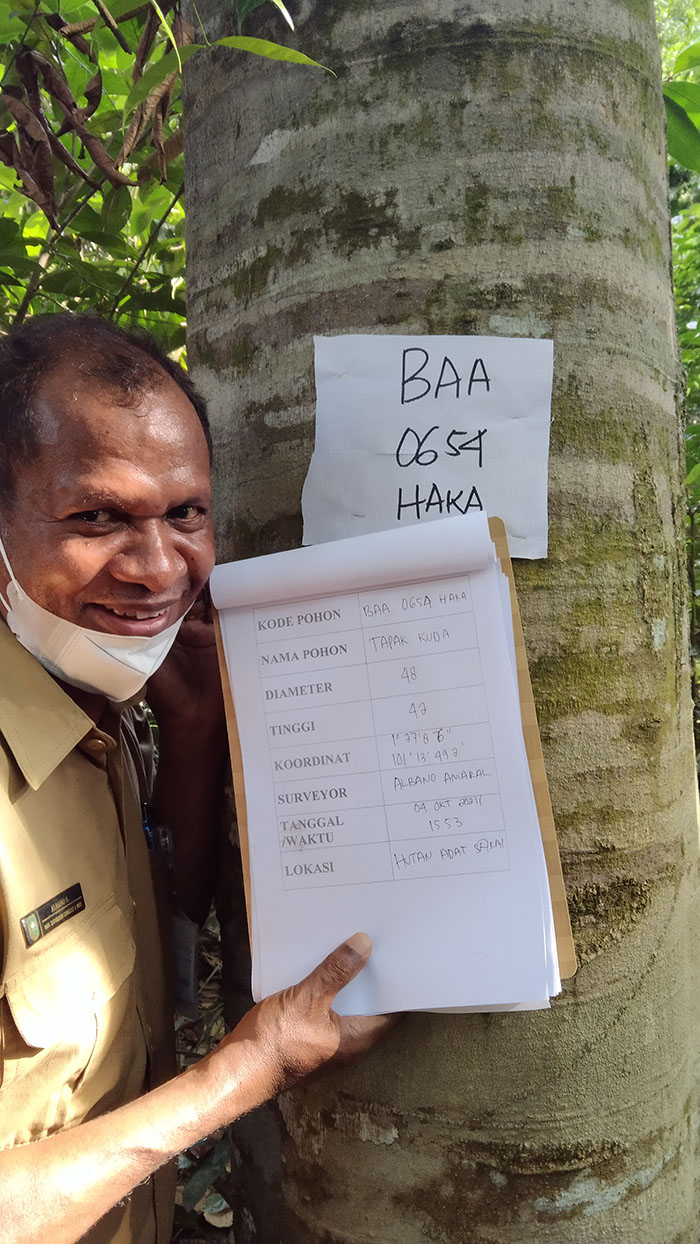 BAA
0654
HAKA
KODE POHON BAA 0654 HAKA
NAMA POHON TAPAK KUDA
DIAMETER 48
TINGGI 42
KOORDINAT 1° 27' 8 6"
101° 13' 49 2"
SURVEYOR ALBANO AMARAL
TANGGAL 04 OKT 2021/
/WAKTU 1553
LOKASI HUTAN ADAT SAKAI